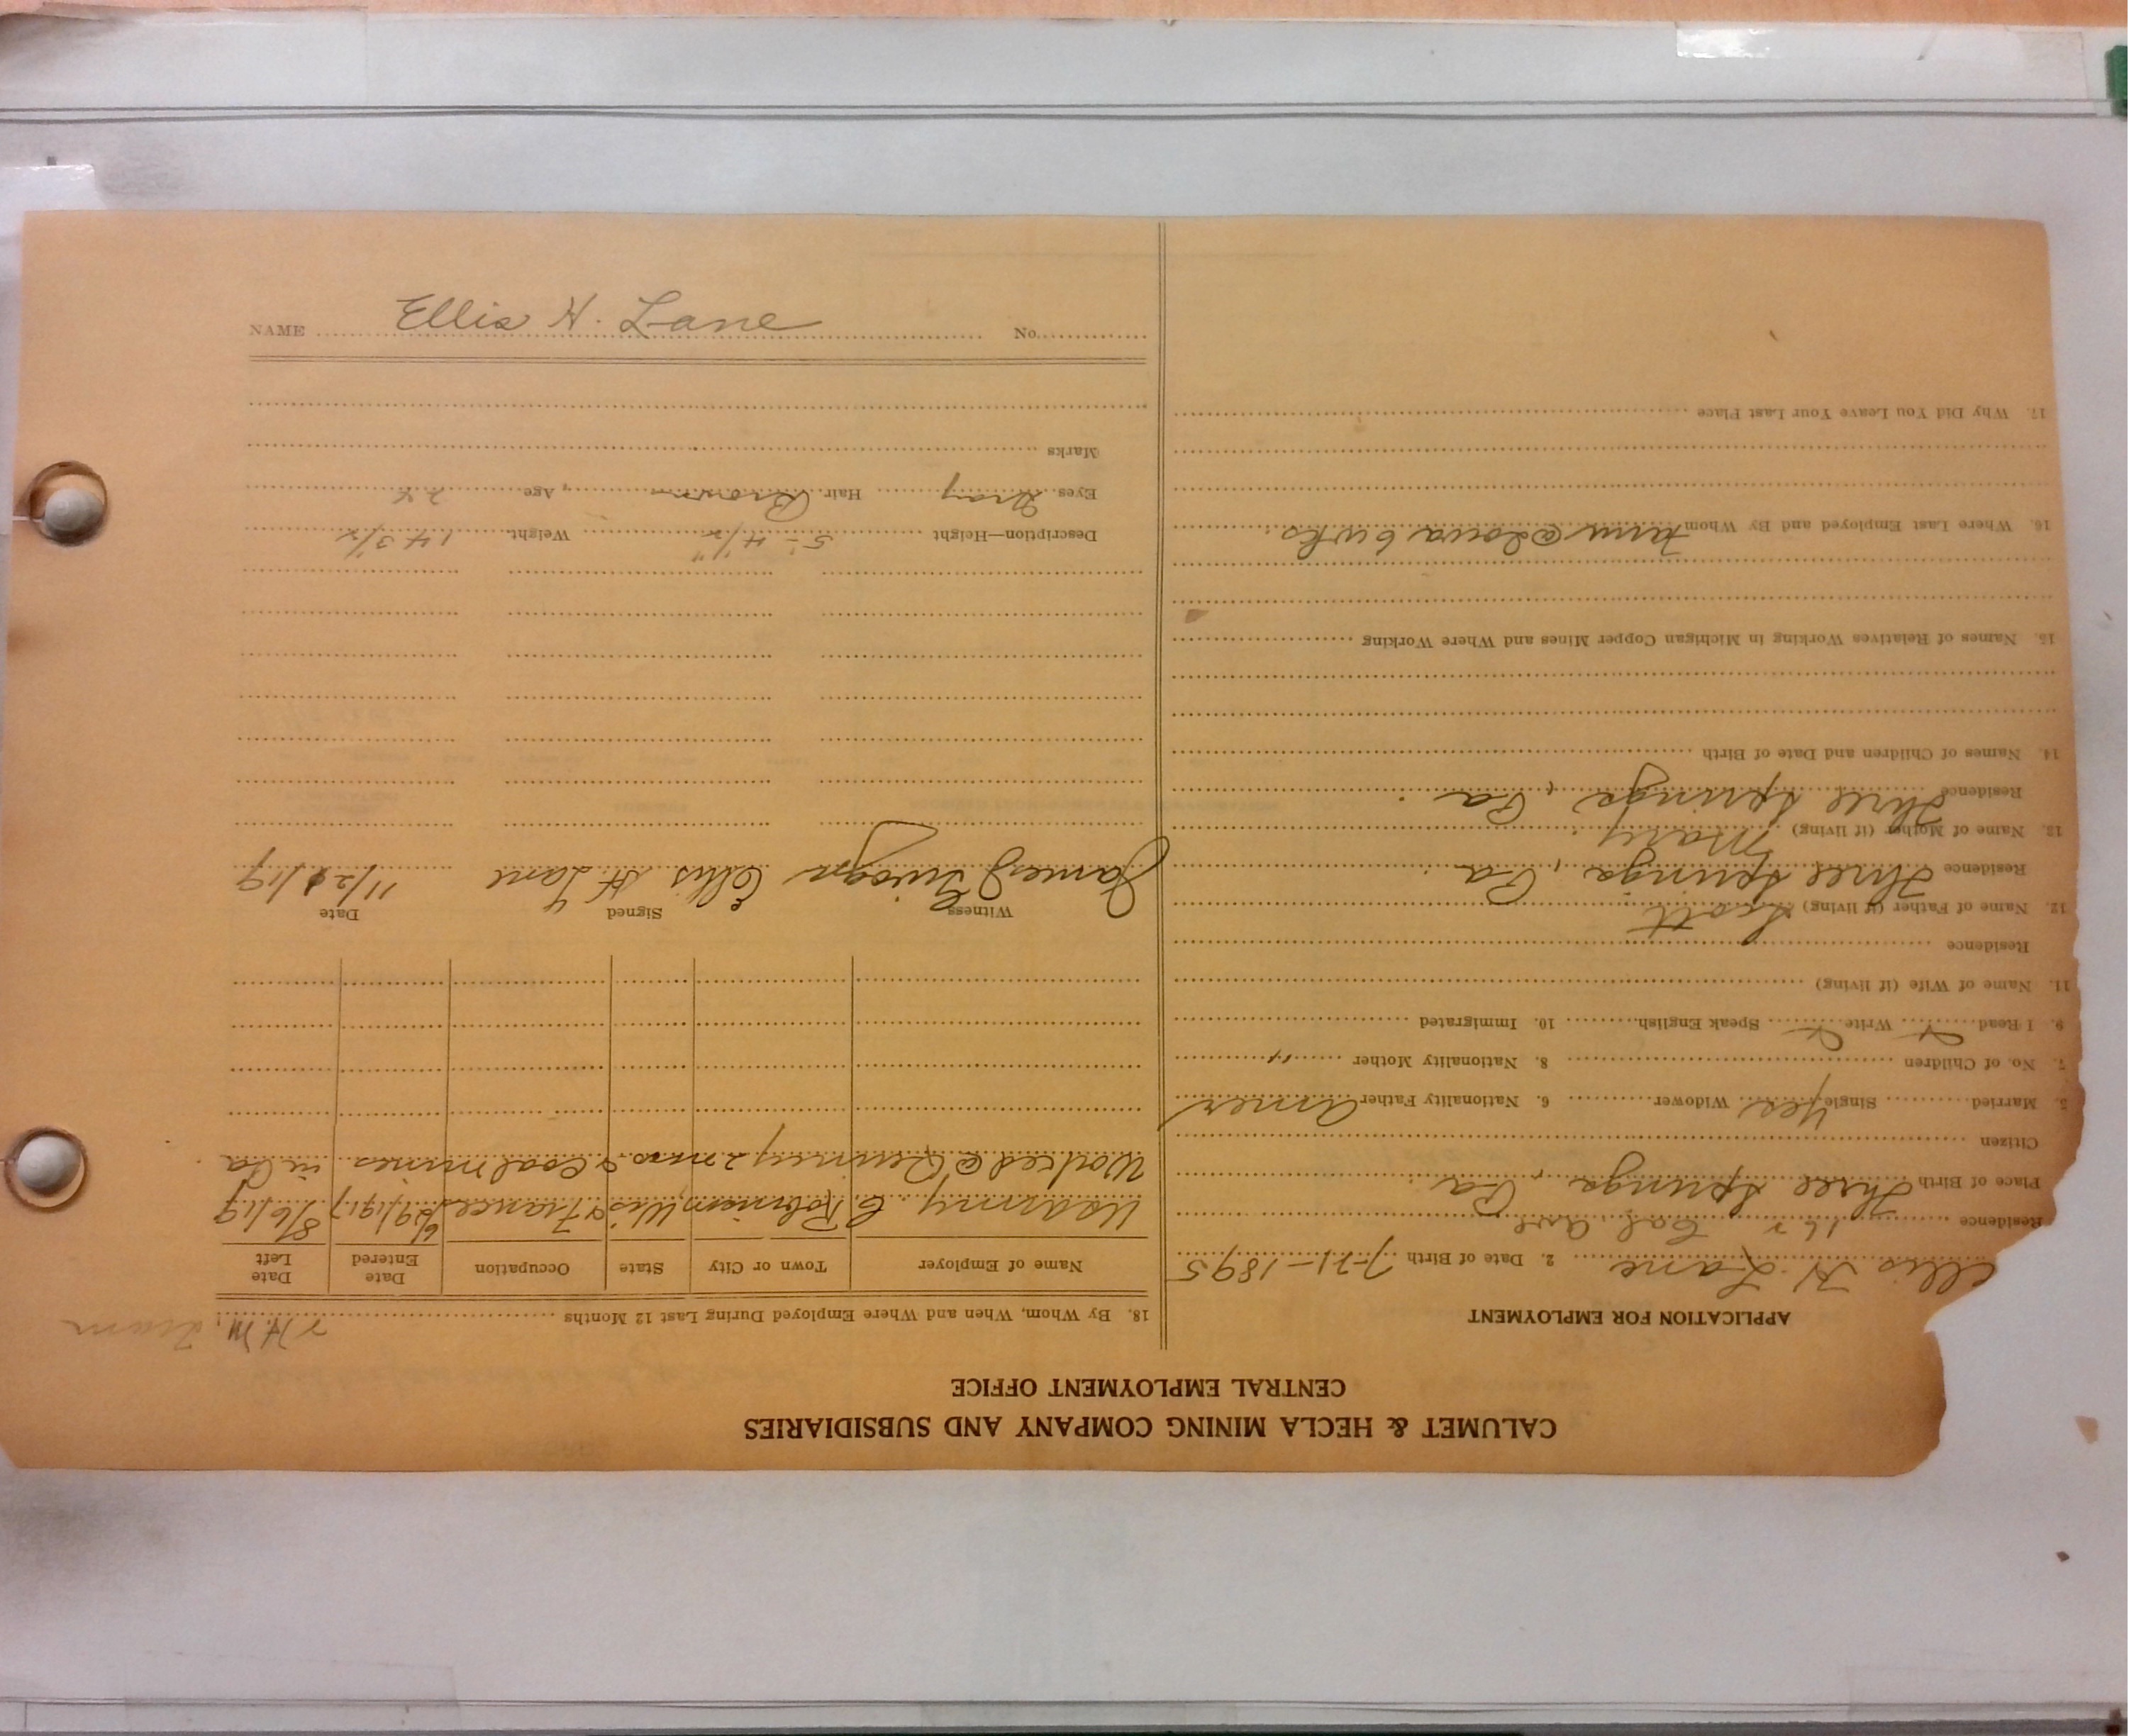 CALUMET & HECLA MINING COMPANY AND SUBSIDIARIES
CENTRAL EMPLOYMENT OFFICE
APPLICATION FOR EMPLOYMENT
Ellis H. Lane 2. Date of Birth 7-21-1895
Residence Cal. Ave
Place of Birth Three Springs, Pa.
Citizen
5. Married Single Yes Widower 6. Nationality Father Amer
7. No. of Children 8. Nationality Mother "
9. I Read Write Speak English 10. Immigrated
11. Name of Wife (if living)
Residence
12. Name of Father (if living) Scott
Residence Three Springs, Pa.
13. Name of Mother (if living) Mary
Residence Three Springs, Pa.
14. Names of Children and Date of Birth
15. Names of Relatives Working in Michigan Copper Mines and Where Working
16. Where Last Employed and By Whom Farm @ Iowa 6 wks.
17. Why Did You Leave Your Last Place
H. M.
18. By Whom, When and Where Employed During Last 12 Months
Name of Employer Town or City State Occupation Date Entered Date Left
US Army Robinson, Wis & France 6/29/1917 8/6/19
Worked @ Quincy 2 mos & Coal mines in Pa
Witness Signed Date
James Ellis H. Lane 11/21/19
Description—Height 5'-4 1/2" Weight 143 1/2
Eyes Gray Hair Brown Age 24
Marks
NAME Ellis H. Lane No.